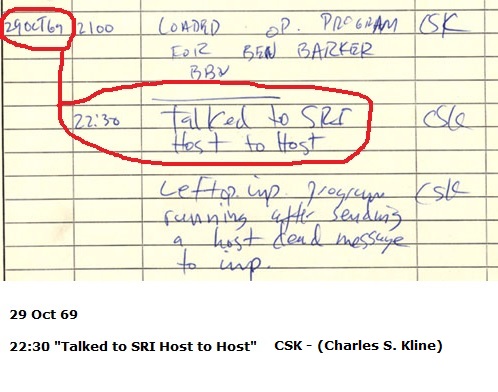 29OCT69 2100 LOADED OP. PROGRAM CSK
FOR BEN BARKER
BBN
22:30 Talked to SRI CSK
Host to Host
Left op. imp. program CSK
running after sending
a host dead message
to imp.
29 Oct 69
22:30 "Talked to SRI Host to Host" CSK - (Charles S. Kline)